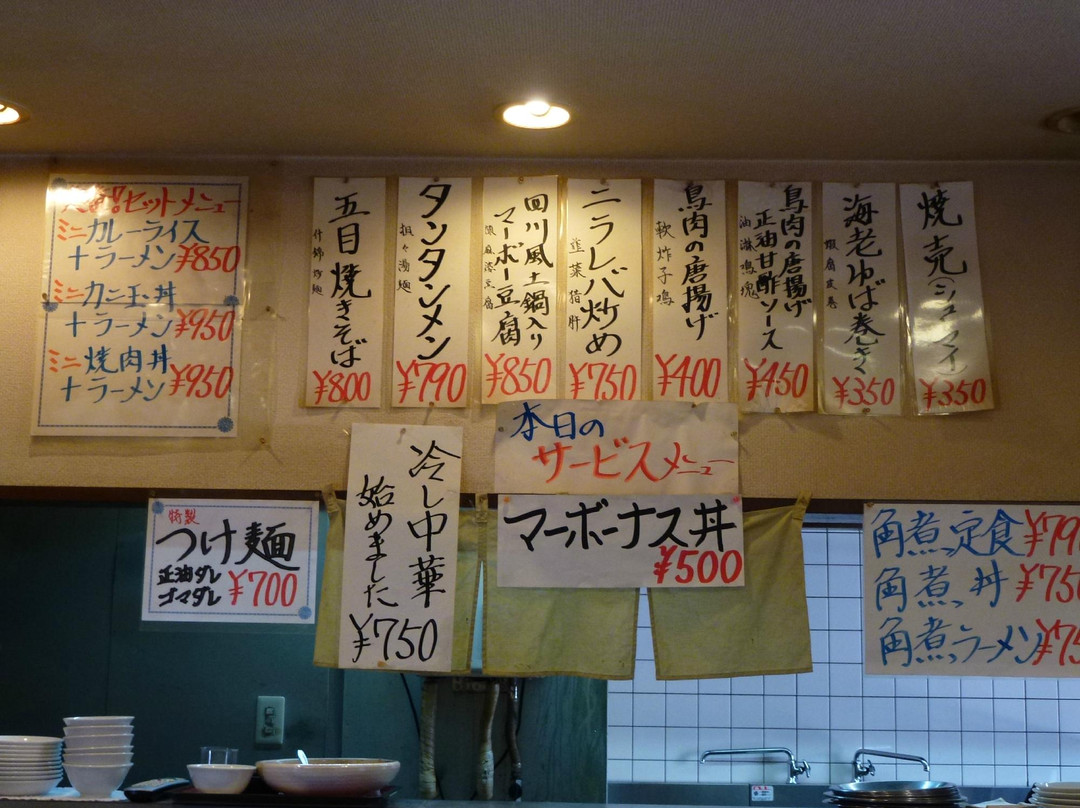 セットメニュー
ミニカレーライス
+ラーメン ¥850
ミニカニ玉丼
+ラーメン ¥950
ミニ焼肉丼
+ラーメン ¥950
五目焼きそば
什錦炒麺
¥800
タンタンメン
担々湯麺
¥790
四川風土鍋入り
マーボー豆腐
陳麻婆豆腐
¥850
ニラレバ炒め
韮菜猪肝
¥750
鳥肉の唐揚げ
軟炸子鶏
¥400
鳥肉の唐揚げ
正油甘酢ソース
油淋鶏塊
¥450
海老ゆば巻き
蝦腐皮巻
¥350
焼売(シュウマイ)
¥350
本日の
サービスメニュー
マーボーナス丼
¥500
冷し中華
始めました
¥750
特製
つけ麺
正油ダレ
ゴマダレ ¥700
角煮定食 ¥79
角煮丼 ¥75
角煮ラーメン ¥75